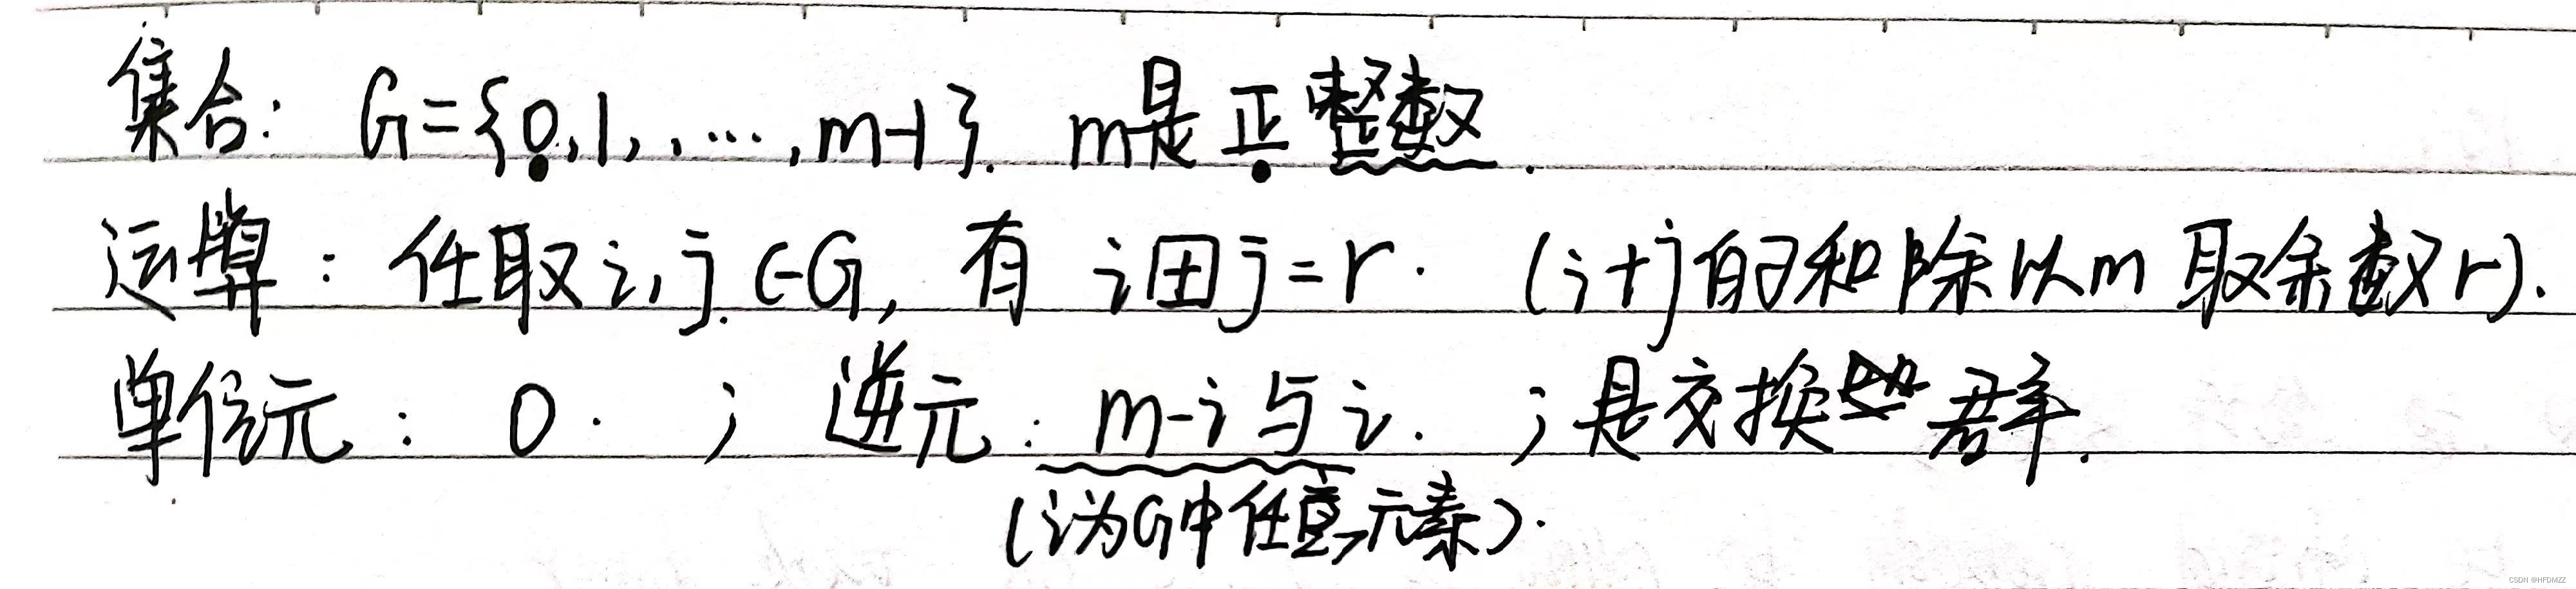 集合： G={0,1,,…,m-1}. m是正整数.
运算：任取i,j∈G, 有 i⊞j=r. (i+j的和除以m 取余数r).
单位元： 0. ; 逆元：m-i与i. ; 是交换群.
(i为G中任意元素).
CSDN @HFDMZZ